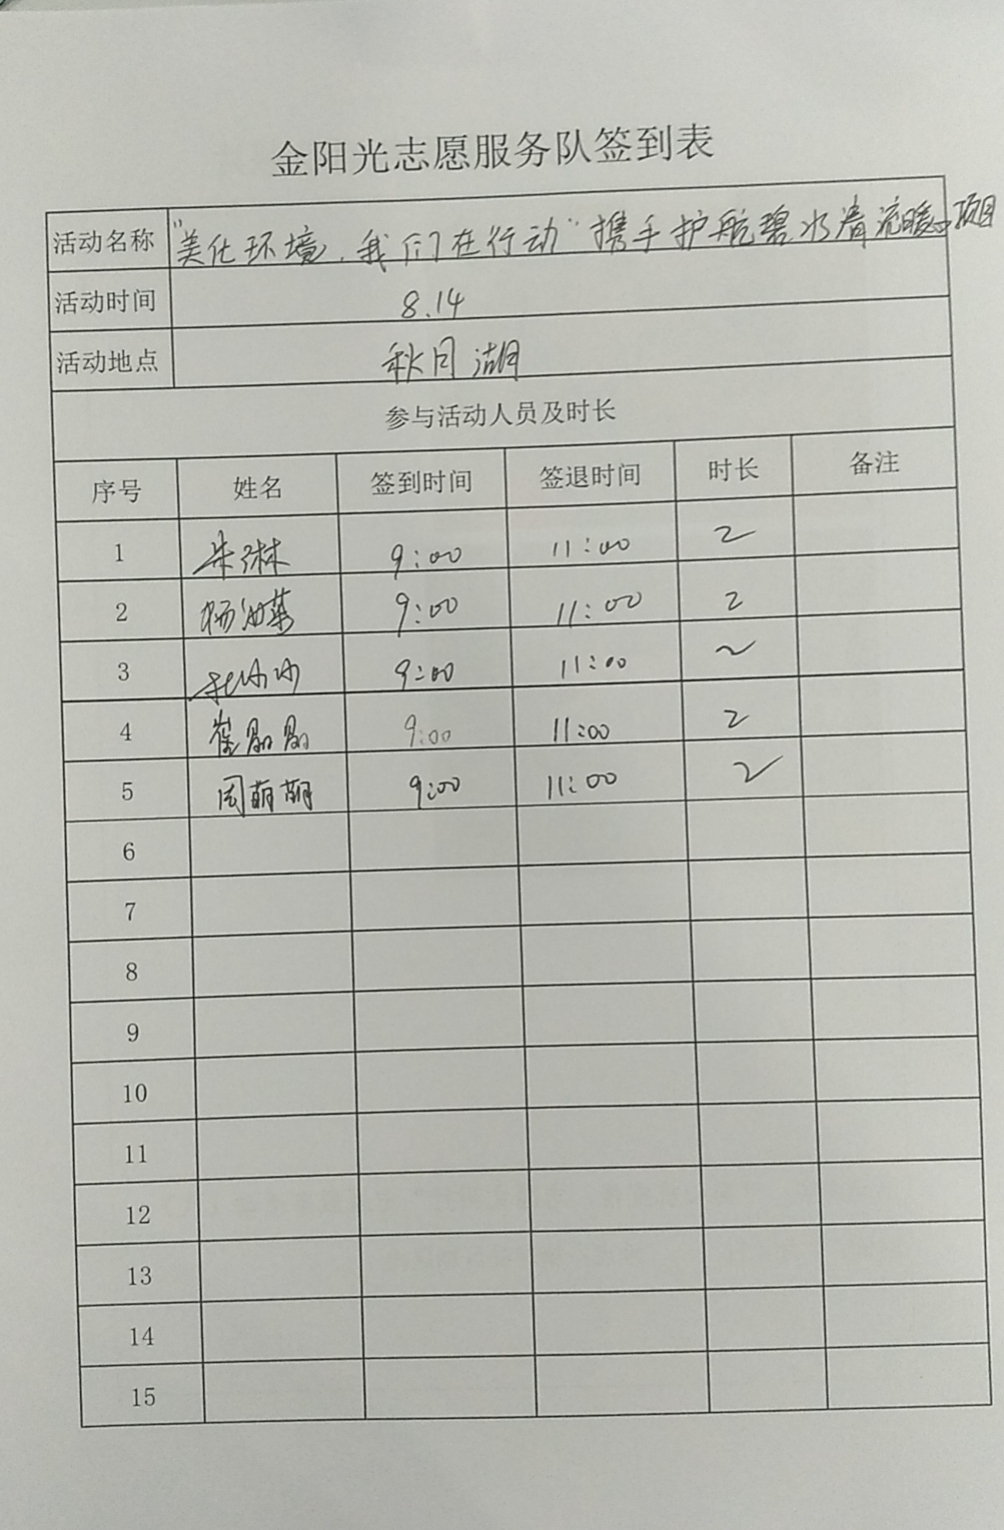 金阳光志愿服务队签到表
活动名称 "美化环境，我们在行动"携手护航碧水清流暖心项目
活动时间 8.14
活动地点 秋月湖
参与活动人员及时长
序号 姓名 签到时间 签退时间 时长 备注
1 朱琳 9:00 11:00 2
2 杨 9:00 11:00 2
3 9:00 11:00 2
4 崔晶晶 9:00 11:00 2
5 周萌萌 9:00 11:00 2
6
7
8
9
10
11
12
13
14
15